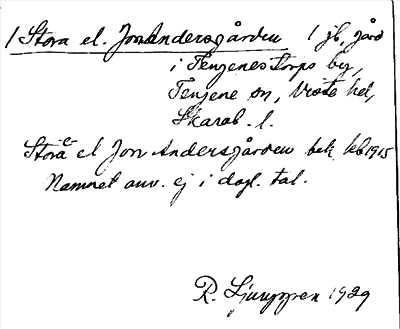 / Stora el. Jon Andersgården 1 jb, gård
i Tengenestorps by,
Tengene sn, Viste hd,
Skarab. l.
Stora el Jon Andersgården bet. kb 1915
Namnet anv. ej i dagl. tal.
R. Ljunggren 1929